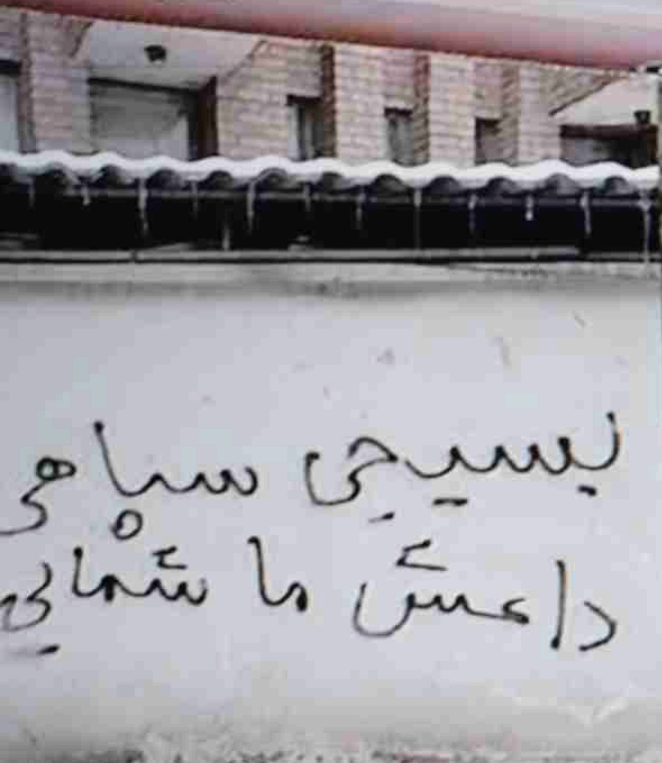 بسیجی سپاهی
داعش ما شمایی